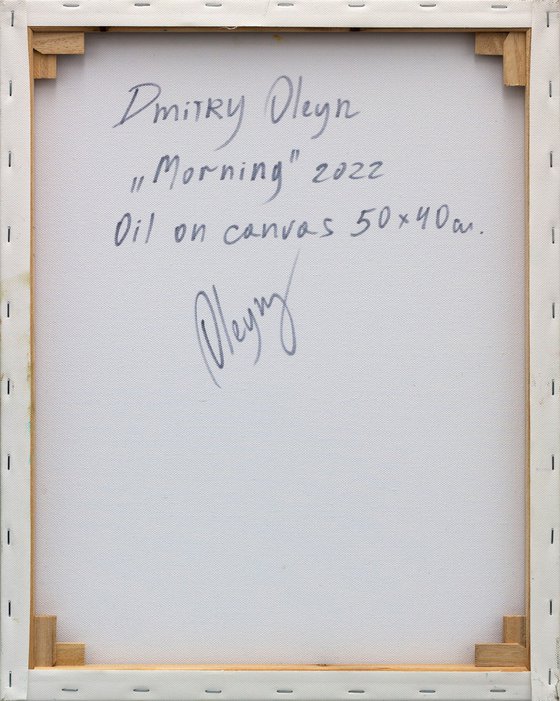 Dmitry Oleyn
„Morning" 2022
Oil on canvas 50×40cm.
Oleyn